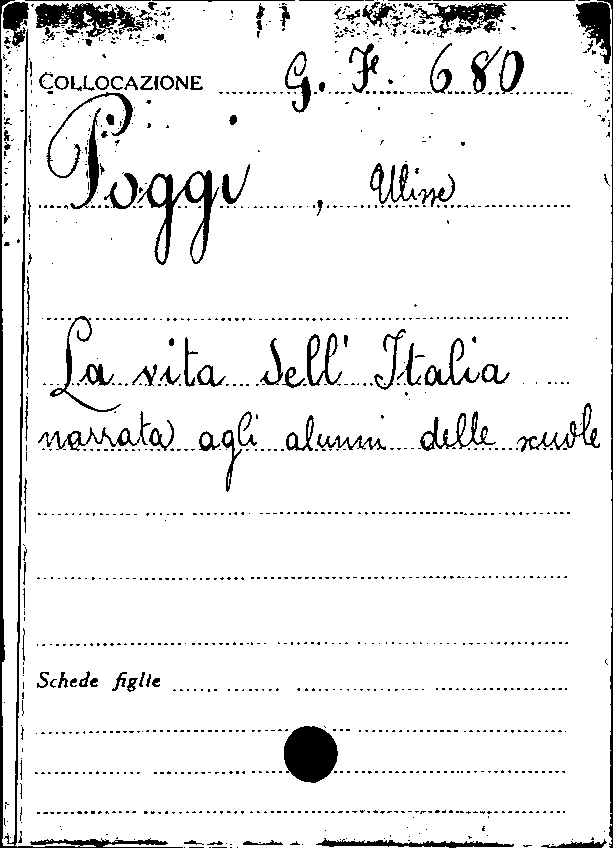 COLLOCAZIONE G. F. 680
Poggi, Ulisse
La vita dell' Italia
narrata agli alunni delle scuole
Schede figlie